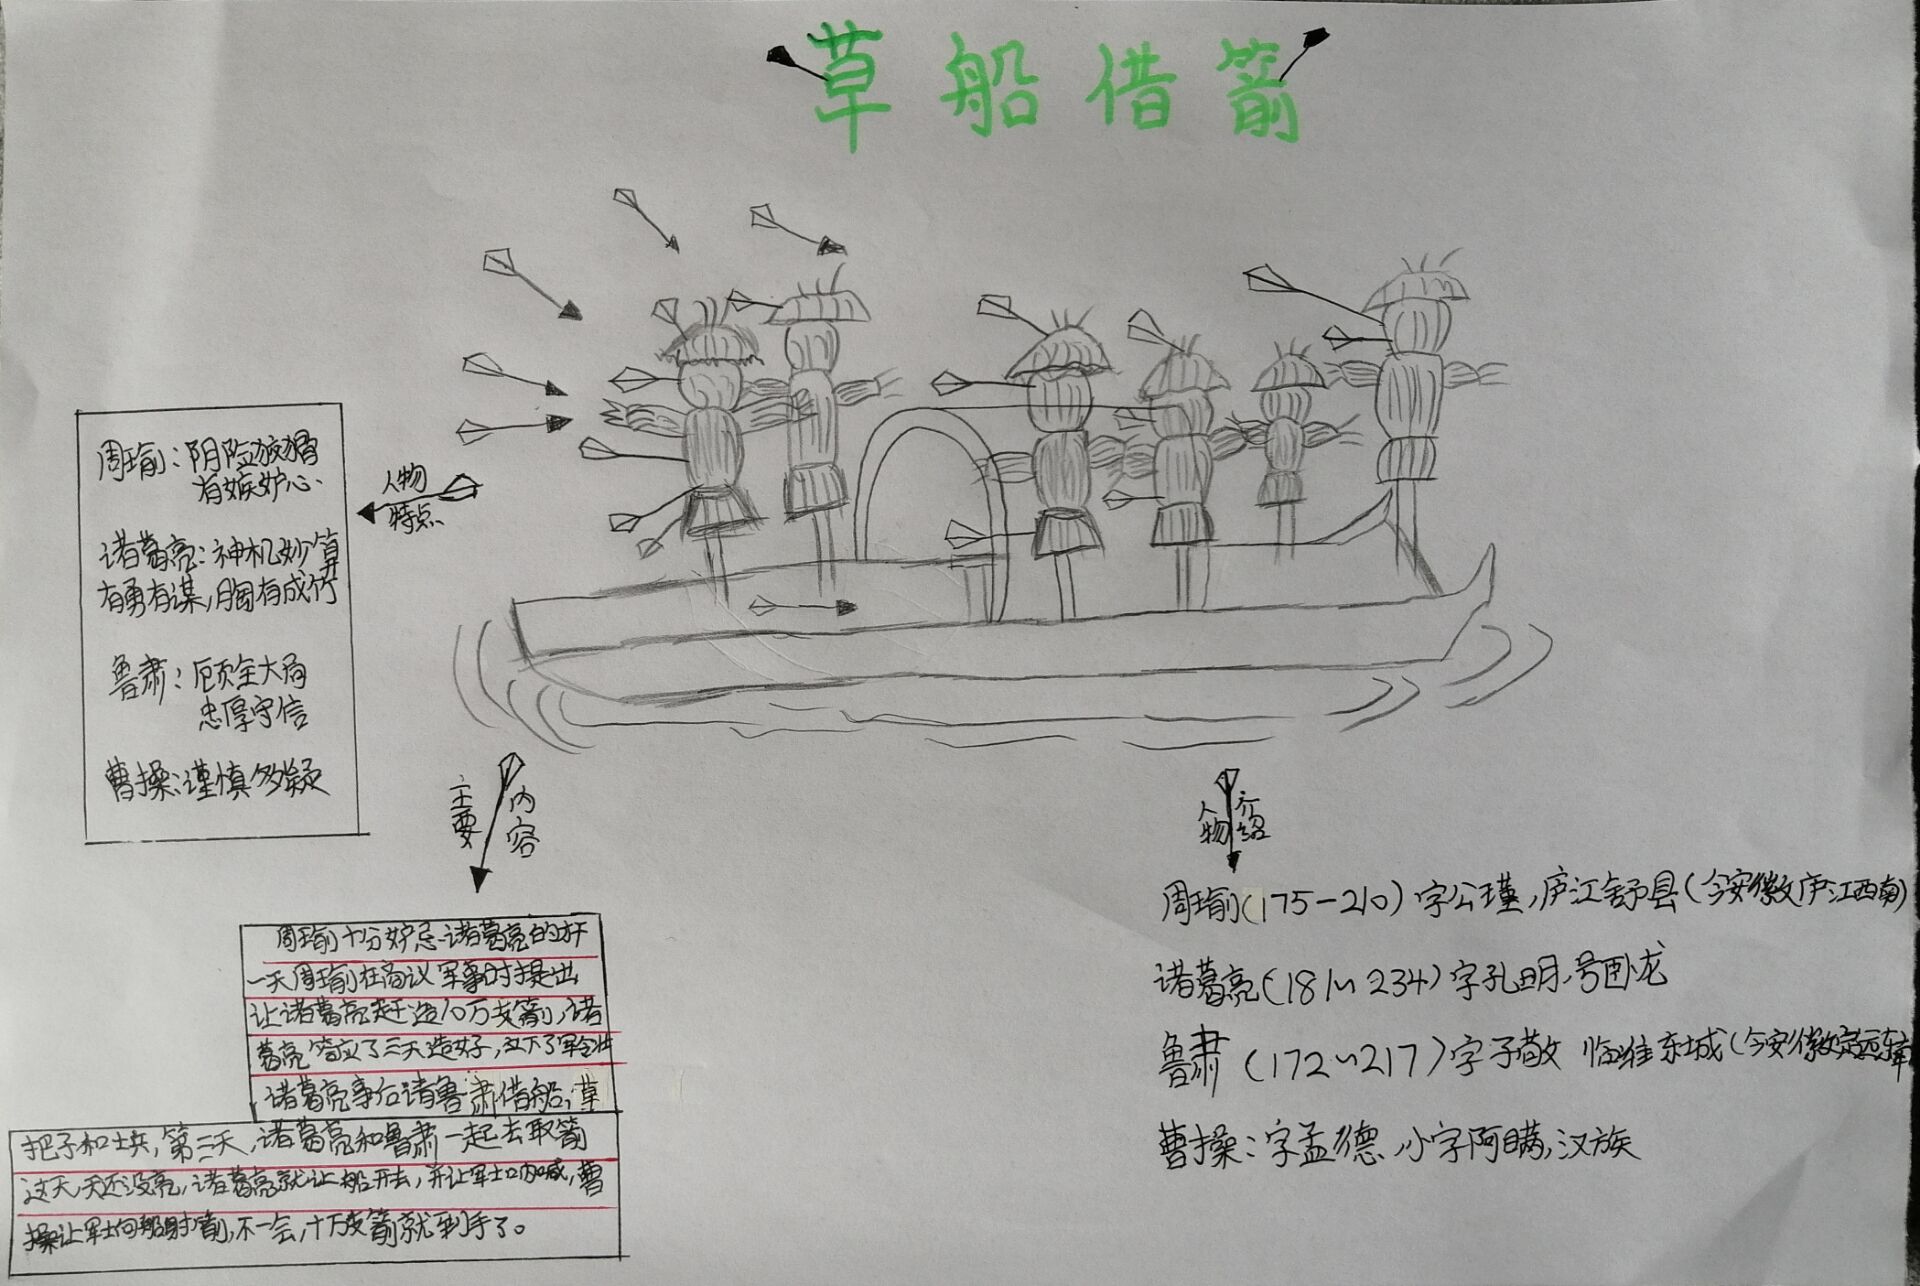 草船借箭
人物
特点
周瑜：阴险狡猾
有嫉妒心
诸葛亮：神机妙算
有勇有谋，胸有成竹
鲁肃：顾全大局
忠厚守信
曹操：谨慎多疑
主要
内容
周瑜十分妒忌诸葛亮的才
一天周瑜在商议军事时提出
让诸葛亮赶造10万支箭，诸
葛亮答应了三天造好，立下了军令状
诸葛亮事后请鲁肃借船，草
把子和士兵，第三天，诸葛亮和鲁肃一起去取箭
这天，天还没亮，诸葛亮就让船开去，并让军士呐喊，曹
操让军士向船射箭，不一会，十万支箭就到手了。
人物
介绍
周瑜(175-210)字公瑾，庐江舒县(今安徽庐江西南)
诸葛亮(181~234)字孔明，号卧龙
鲁肃(172~217)字子敬 临淮东城(今安徽定远东南
曹操：字孟德，小字阿瞒，汉族